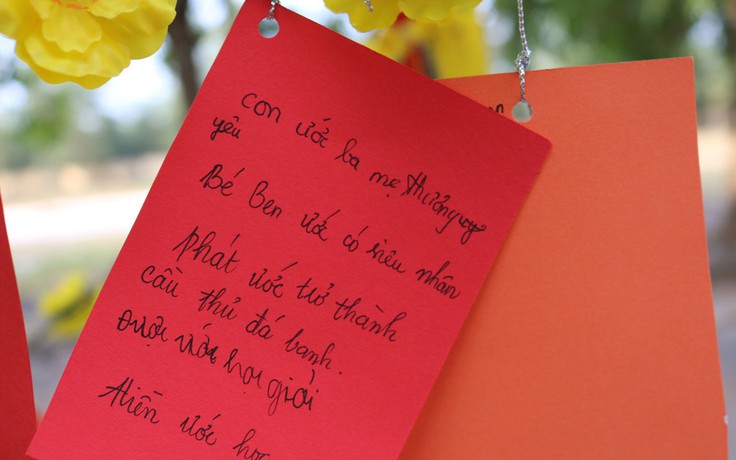 con ước ba mẹ thương
yêu
Bé Ben ước có siêu nhân
Phát ước trở thành
cầu thủ đá banh.
Được ước học giỏi
Hiền ước học